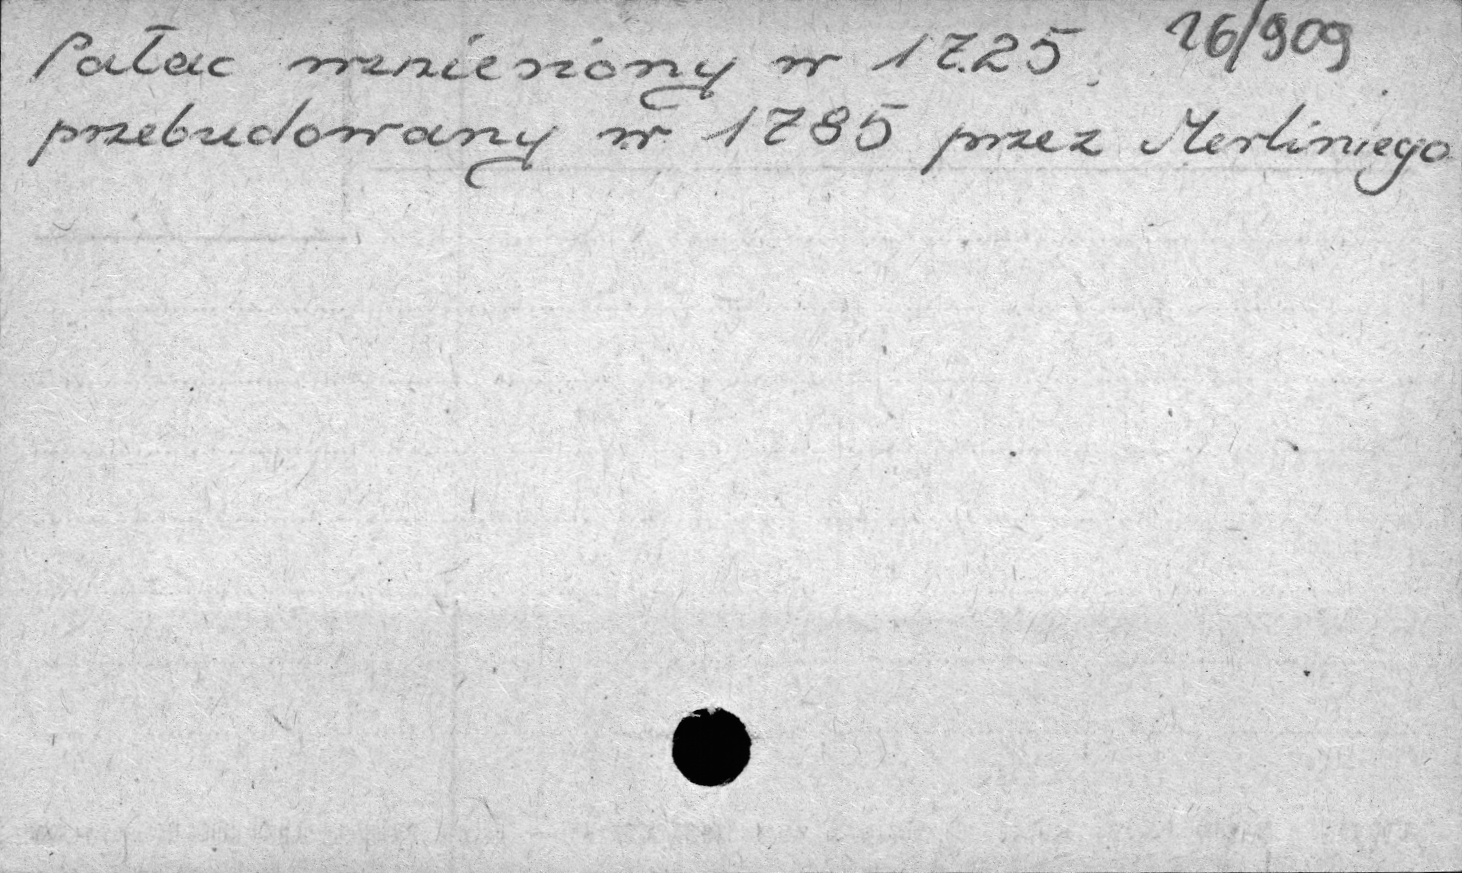 26/909
Pałac wzniesiony w 1725,
przebudowany w 1785 przez Merliniego